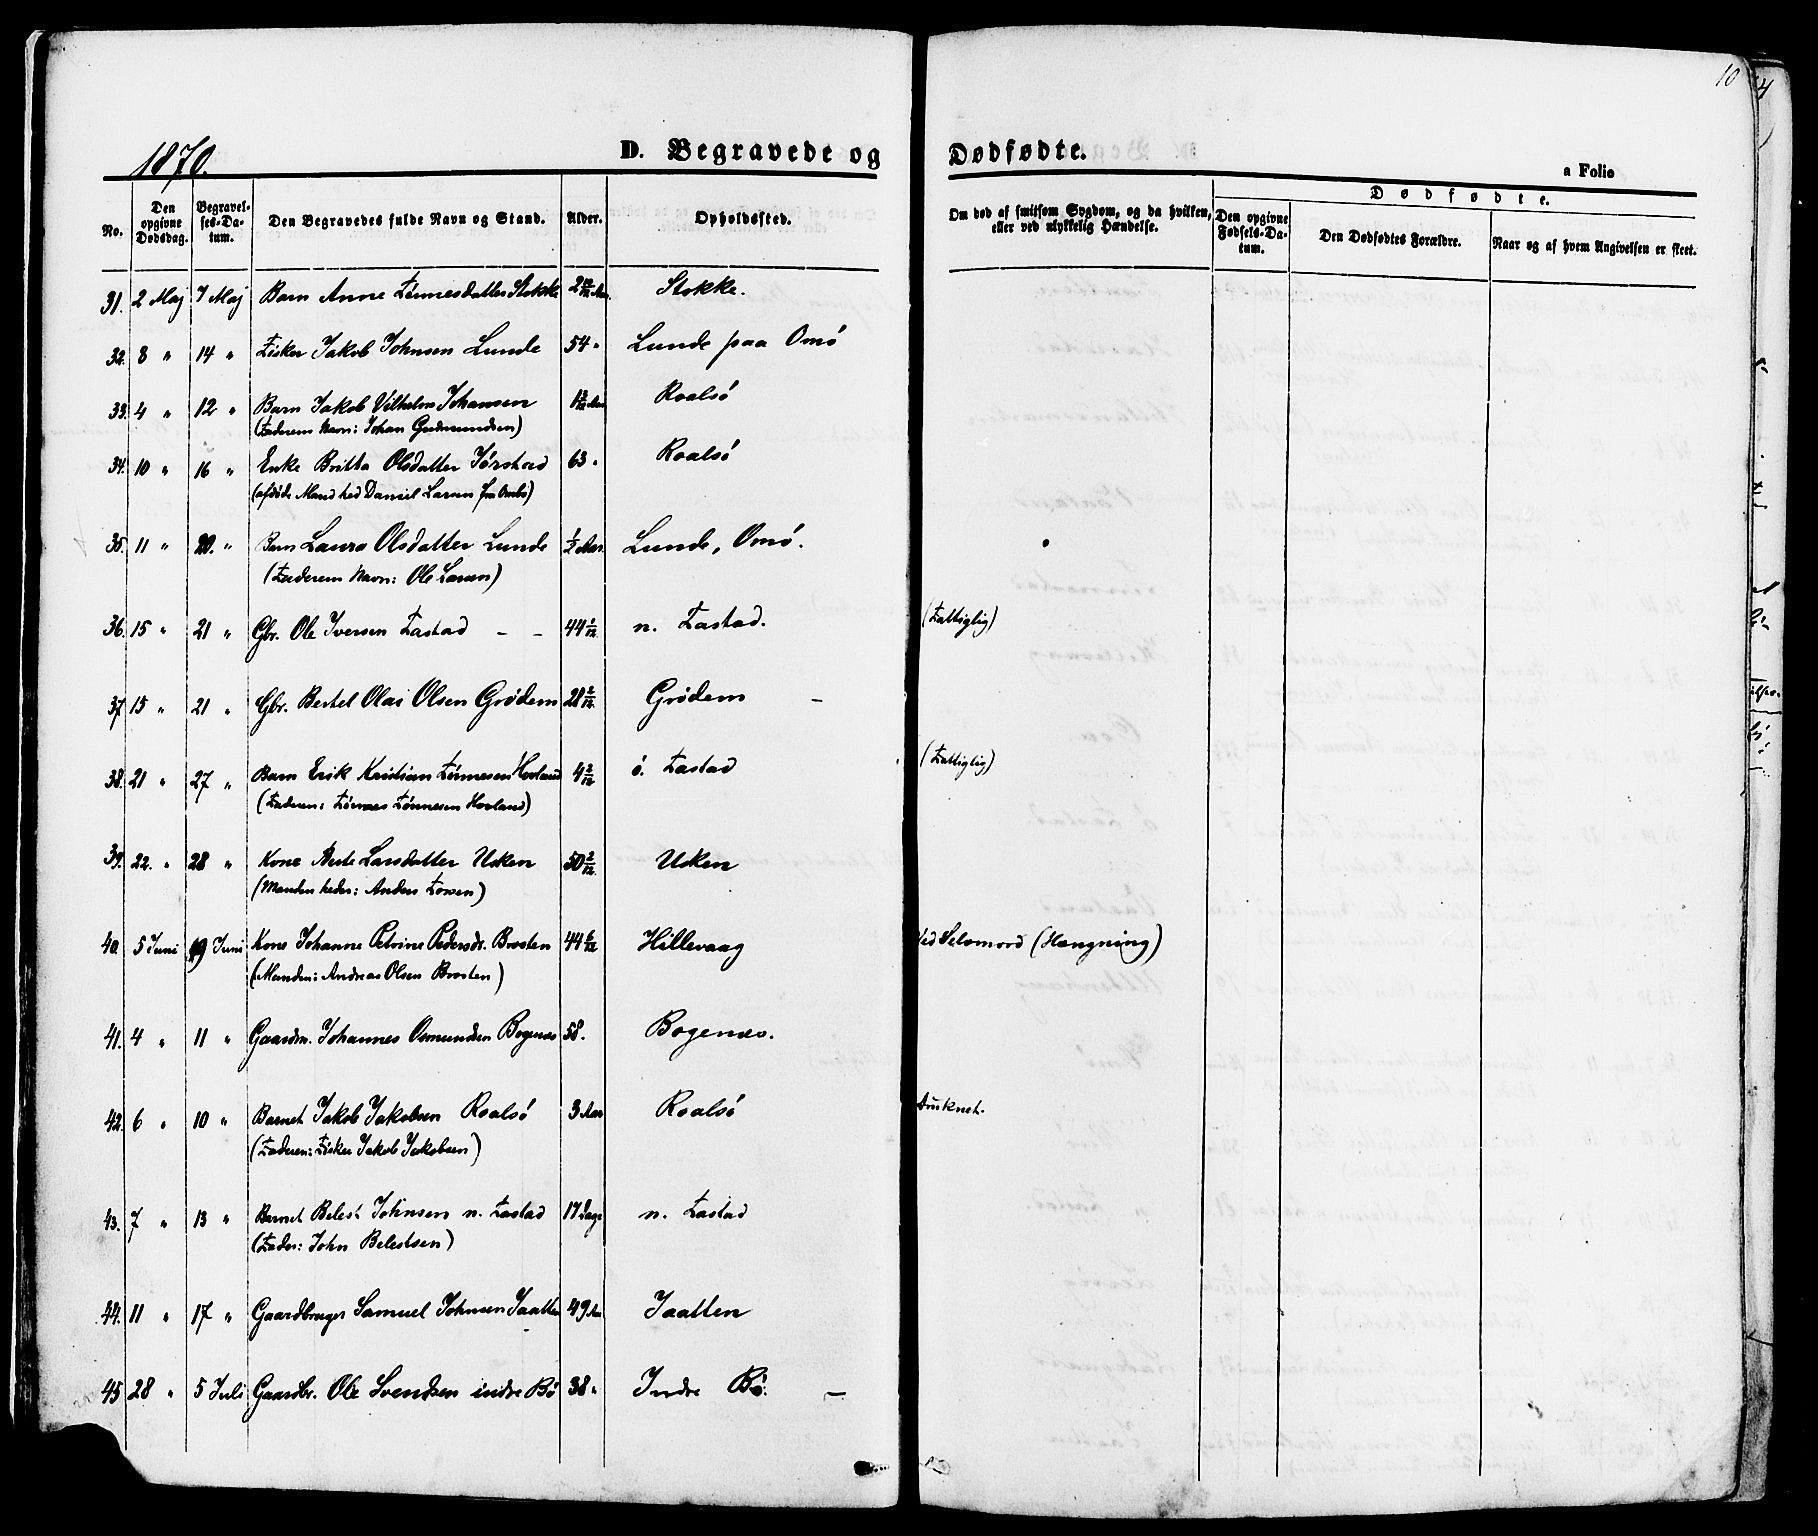 10
1870.
D. Begravede og Dødfødte.
a Folio
No.
Den opgivne Dødsdag.
Begravelses-Datum.
Den Begravedes fulde Navn og Stand.
Alder.
Opholdssted.
Om død af smitsom Sygdom, og da hvilken, eller ved ulykkelig Hændelse.
Dødfødte.
Den opgivne Fødsels-Datum.
Den Dødfødtes Forældre.
Naar og af hvem Angivelsen er skeet.
31. 2 Maj 7 Maj Barn Anne Tønnesdatter Stokke 2 Aar. Stokke.
32. 8 " 14 " Fisker Jakob Johnsen Lunde 54 " Lunde paa Omø
33. 4 " 12 " Barn Jakob Vilhelm Johansen Aar Roalsø
(Faderens Navn: Johan Gudmundsen)
34. 10 " 16 " Enke Britta Olsdatter Jørstad 63 " Roalsø
(afdøde Mand hed Daniel Larsen fra Ombø)
35. 11 " 20. " Barn Laura Olsdatter Lunde ½ Aar. Lunde, Omø.
(Faderens Navn: Ole Larsen)
36. 15 " 21 " Gbr. Ole Iversen Fastad - - 44 1/12 n. Fastad. (Fattiglig)
37 15 " 21 " Gbr. Bertel Olai Olsen Grødem 28 2/12 Grødem -
38. 21 " 27 " Barn Erik Kristian Tønnesen Hovland 4 2/12 ø. Fastad (Fattiglig)
(Faderen: Tønnes Tønnesen Hovland)
39. 22. " 28 " Kone Berte Larsdatter Usken 50 2/12 Usken
(Manden heder: Anders Tossen)
40. 5 Juni 19 Juni Kone Johanne Petrine Pedersdr. Brosten 44 6/12 Hillevaag Ved Selvmord (Hængning)
(Manden: Andreas Olsen Brosten)
41. 4 " 11 " Gaardm. Johannes Osmundsen Bogenæs 58. Bogenæs.
42. 6 " 10 " Barnet Jakob Jakobsen Roalsø 3 Aar Roalsø druknet.
(Faderen: Fisker Jakob Jakobsen)
43. 7 " 13 " Barnet Belest Johnsen n. Fastad 17 Dage n. Fastad
(Fader: John Belestsen)
44. 11 " 17 " Gaardbruger Samuel Johnsen Jaatten 49 Aar Jaatten
45 28 " 5 Juli Gaardbr. Ole Svendsen indre Bø 38 " Indre Bø. -